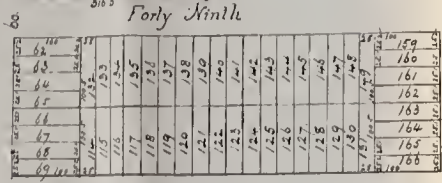 60.
Forty Ninth
62 100
63
64
65
66
67
68
69 100
132 133 134 135 136 137 138 139 140 141 142 143 144 145 146 147 148 149
114 115 116 117 118 119 120 121 122 123 124 125 126 127 128 129 130 131
100 159
160
161
162
163
164
165
166
100